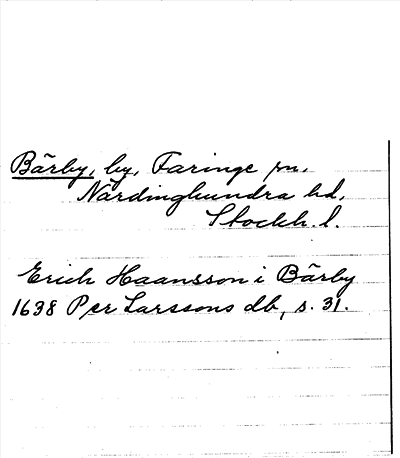 Bärby, by, Faringe sn.
Närdinghundra hd,
Stockh. l.
Erich Haansson i Bärby
1638 Per Larssons db, s. 31.